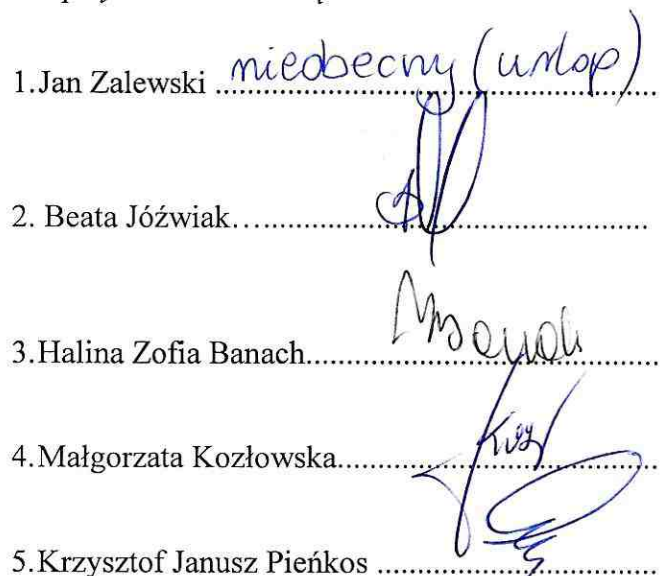 1.Jan Zalewski ..... niedobecny (urlop)
2. Beata Jóźwiak.....
3.Halina Zofia Banach..... Banach
4.Małgorzata Kozłowska.....
5.Krzysztof Janusz Pieńkos .....